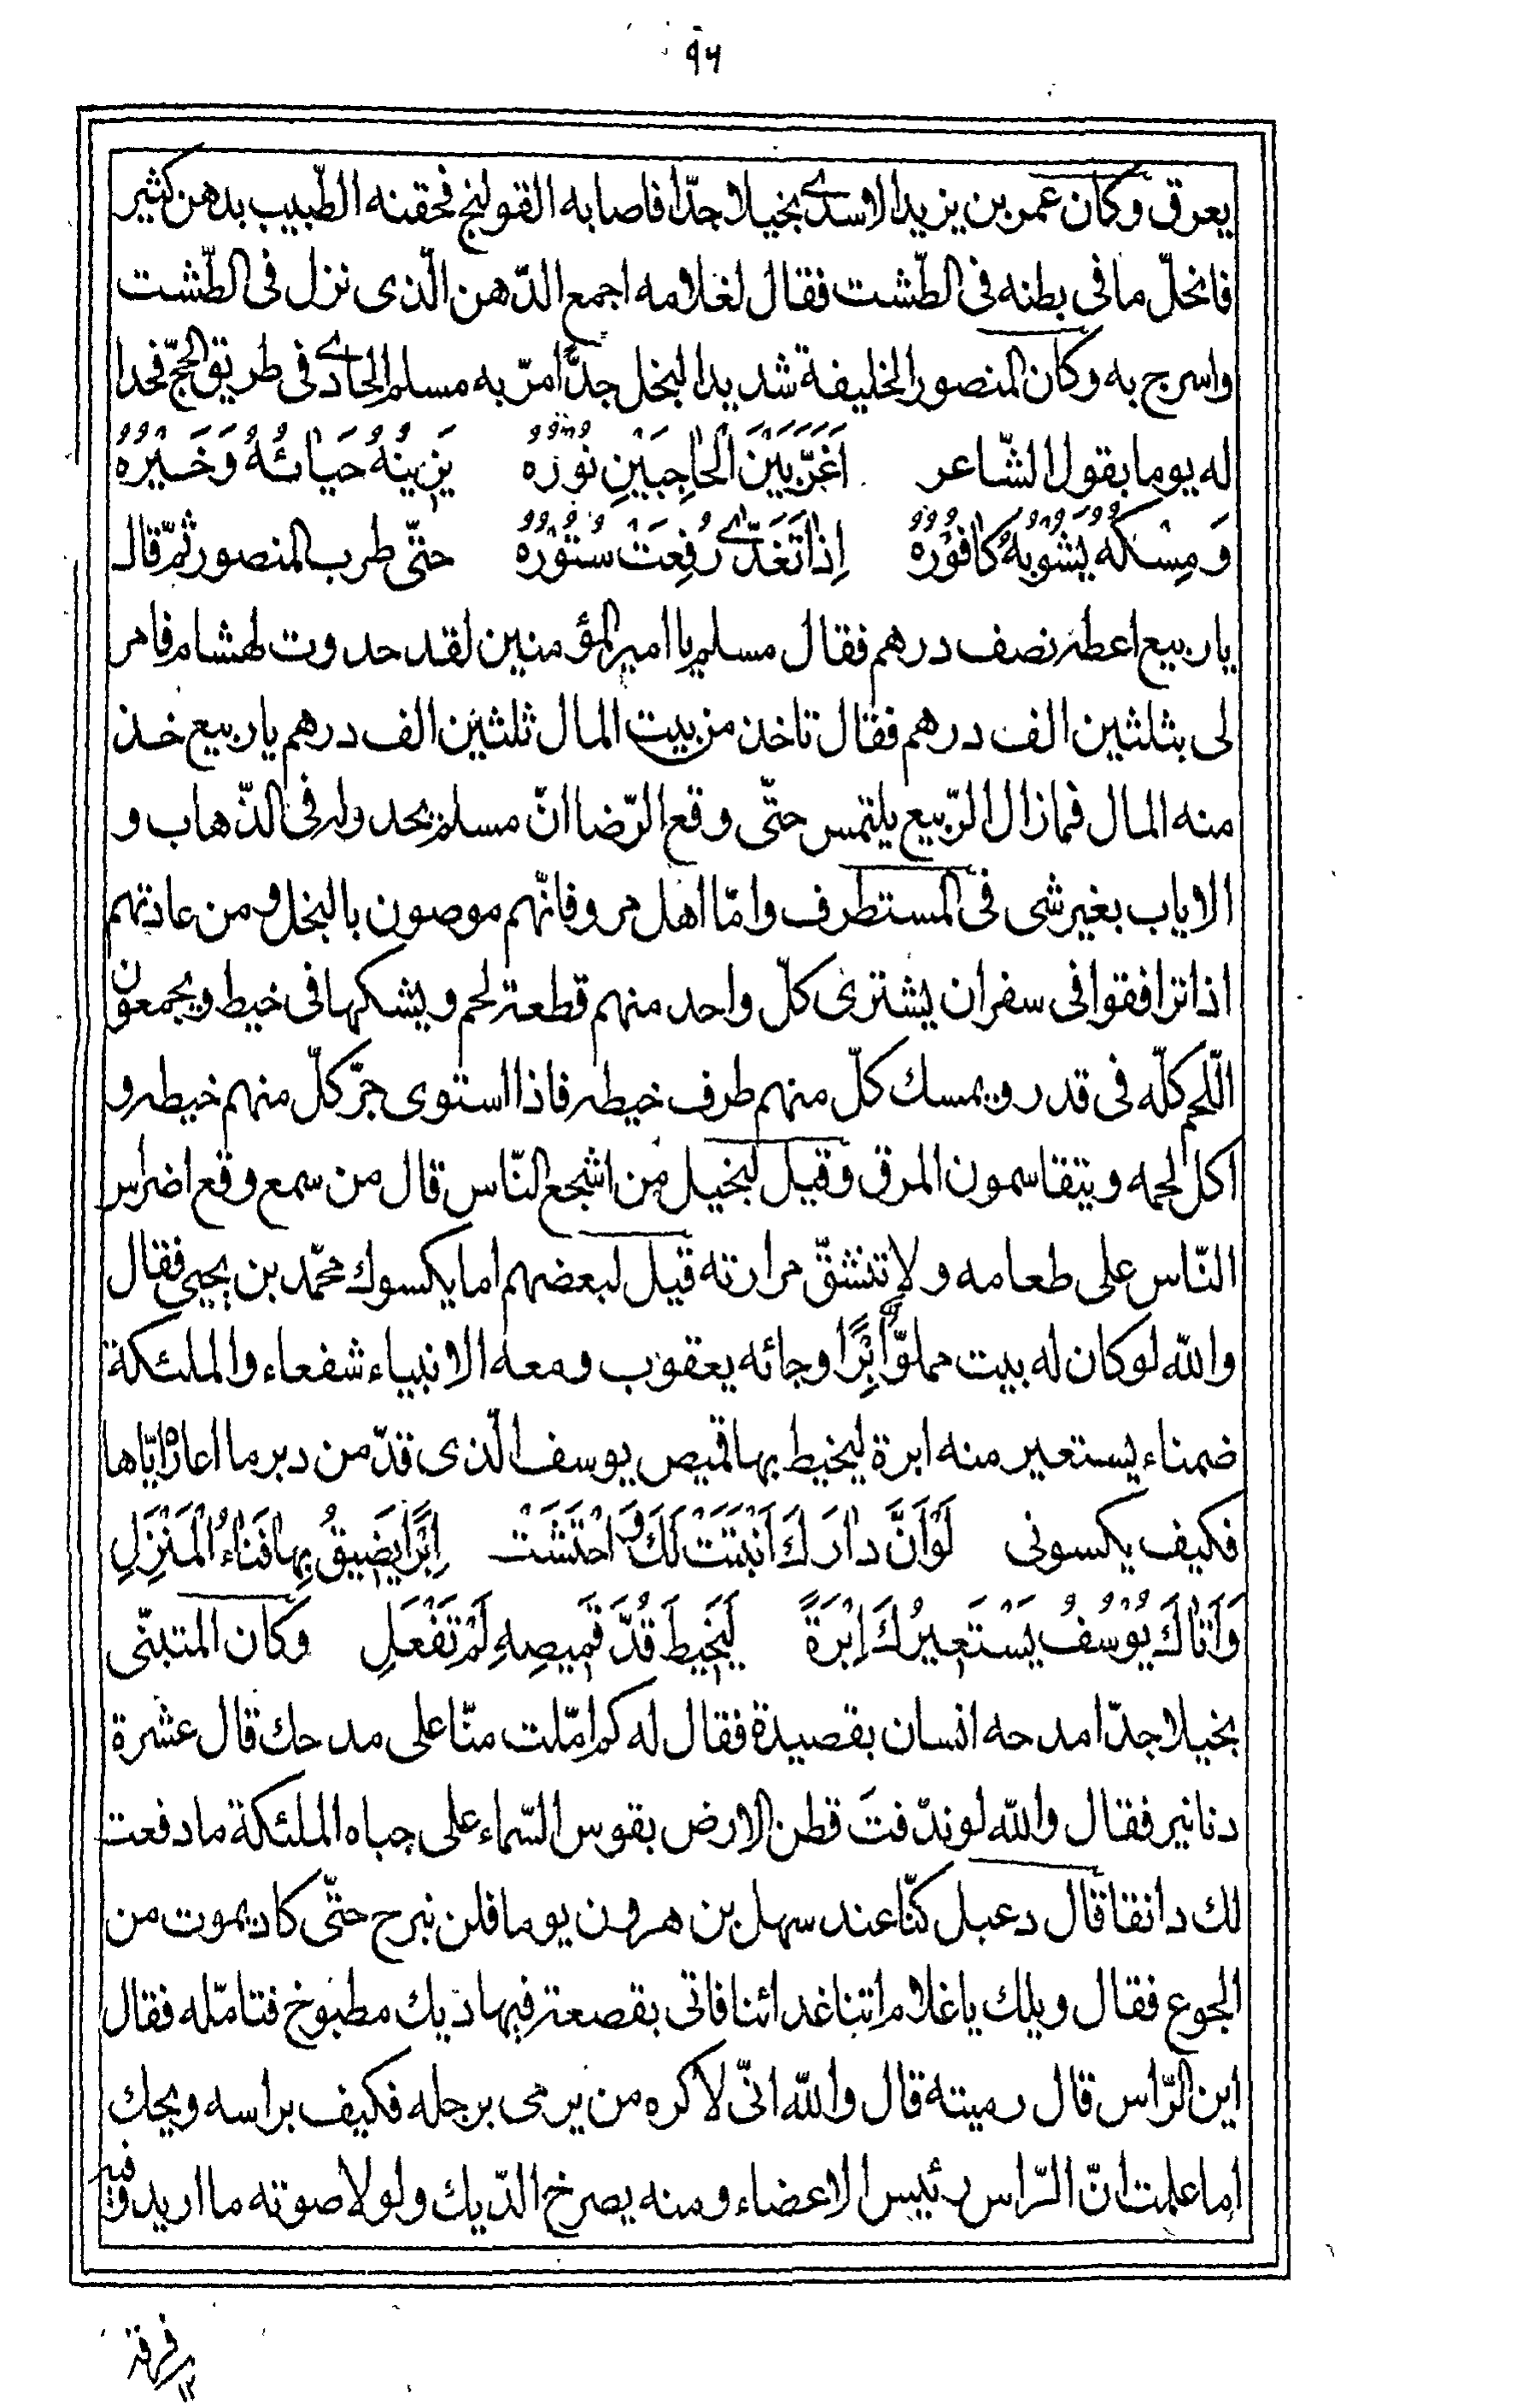 ٩٦
يعرق وكان عمر بن يزيد الاسدى بخيلا جدّا فاصابه القولنج فحقنه الطّبيب بدهن كثير
فانحلّ ما فى بطنه فى الطّشت فقال لغلامه اجمع الدّهن الّذى نزل فى الطّشت
واسرج به وكان المنصور الخليفة شديد البخل جدًّا مرّ به مسلم الحادى فى طريق الحجّ فحدا
له يوما بقول الشّاعر اَغَرُّ بَيْنَ الْحاجِبَيْنِ نُوْرُهُ يَزِينُهُ حَيائُهُ وَخَيْرُهُ
وَمِسْكُهُ يَشُوبُهُ كافُوْرُهُ اِذا تَغَدّى رُفِعَتْ سُتُوْرُهُ حتّى طرب المنصور ثمّ قال
يا ربيع اعطه نصف درهم فقال مسلم يا امير المؤمنين لقد حدوت لهشام فامر
لى بثلثين الف درهم فقال تاخذ من بيت المال ثلثين الف درهم يا ربيع خذ
منه المال فما زال الرّبيع يلتمس حتّى وقع الرّضا انّ مسلم يحدو له فى الذّهاب و
الاياب بغير شى فى المستطرف وامّا اهل مرو فانّهم موصون بالبخل و من عادتهم
اذا ترافقوا فى سفر ان يشترى كلّ واحد منهم قطعة لحم ويشكها فى خيط ويجمعون
اللّحم كلّه فى قدر ويمسك كلّ منهم طرف خيطه فاذا استوى جرّ كلّ منهم خيطه و
اكل لحمه ويتقاسمون المرق وقيل لبخيل من اشجع النّاس قال من سمع وقع اضراس
النّاس على طعامه ولا تنشقّ مرارته قيل لبعضهم اما يكسوك محمّد بن يحيى فقال
والله لو كان له بيت مملوّا اِبَرًا وجائه يعقوب ومعه الانبياء شفعاء والملئكة
ضمناء يستعير منه ابرة ليخيط بها قميص يوسف الّذى قدّ من دبر ما اعاره ايّاها
فكيف يكسونى لَوْ اَنَّ دارَكَ اَنْبَتَتْ لَكَ وَ احْتَشَتْ اِبَرًا يَضيقُ بِها فَناءُ الْمَنْزِلِ
وَاَتاكَ يُوْسُفُ يَسْتَعيرُكَ اِبْرَةً لِيَخيطَ قُدَّ قَميصِهِ لَمْ تَفْعَلِ وكان المتبنّى
بخيلا جدّا مدحه انسان بقصيدة فقال له كم امّلت منّا على مدحك قال عشرة
دنانير فقال والله لو ندّفتَ قطن الارض بقوس السّماء على جباه الملئكة ما دفعت
لك دانقا قال دعبل كنّا عند سهل بن هرون يوما فلن نبرح حتّى كاد يموت من
الجوع فقال ويلك يا غلام اتنا غدائنا فاتى بقصعة فيها ديك مطبوخ فتامّله فقال
اين الرّاس قال رميته قال والله انّى لاكره من يرمى برجله فكيف براسه ويحك
اما علمت انّ الرّاس رئيس الاعضاء ومنه يصرخ الدّيك ولولا صوته ما اريد وفيه
فرقه